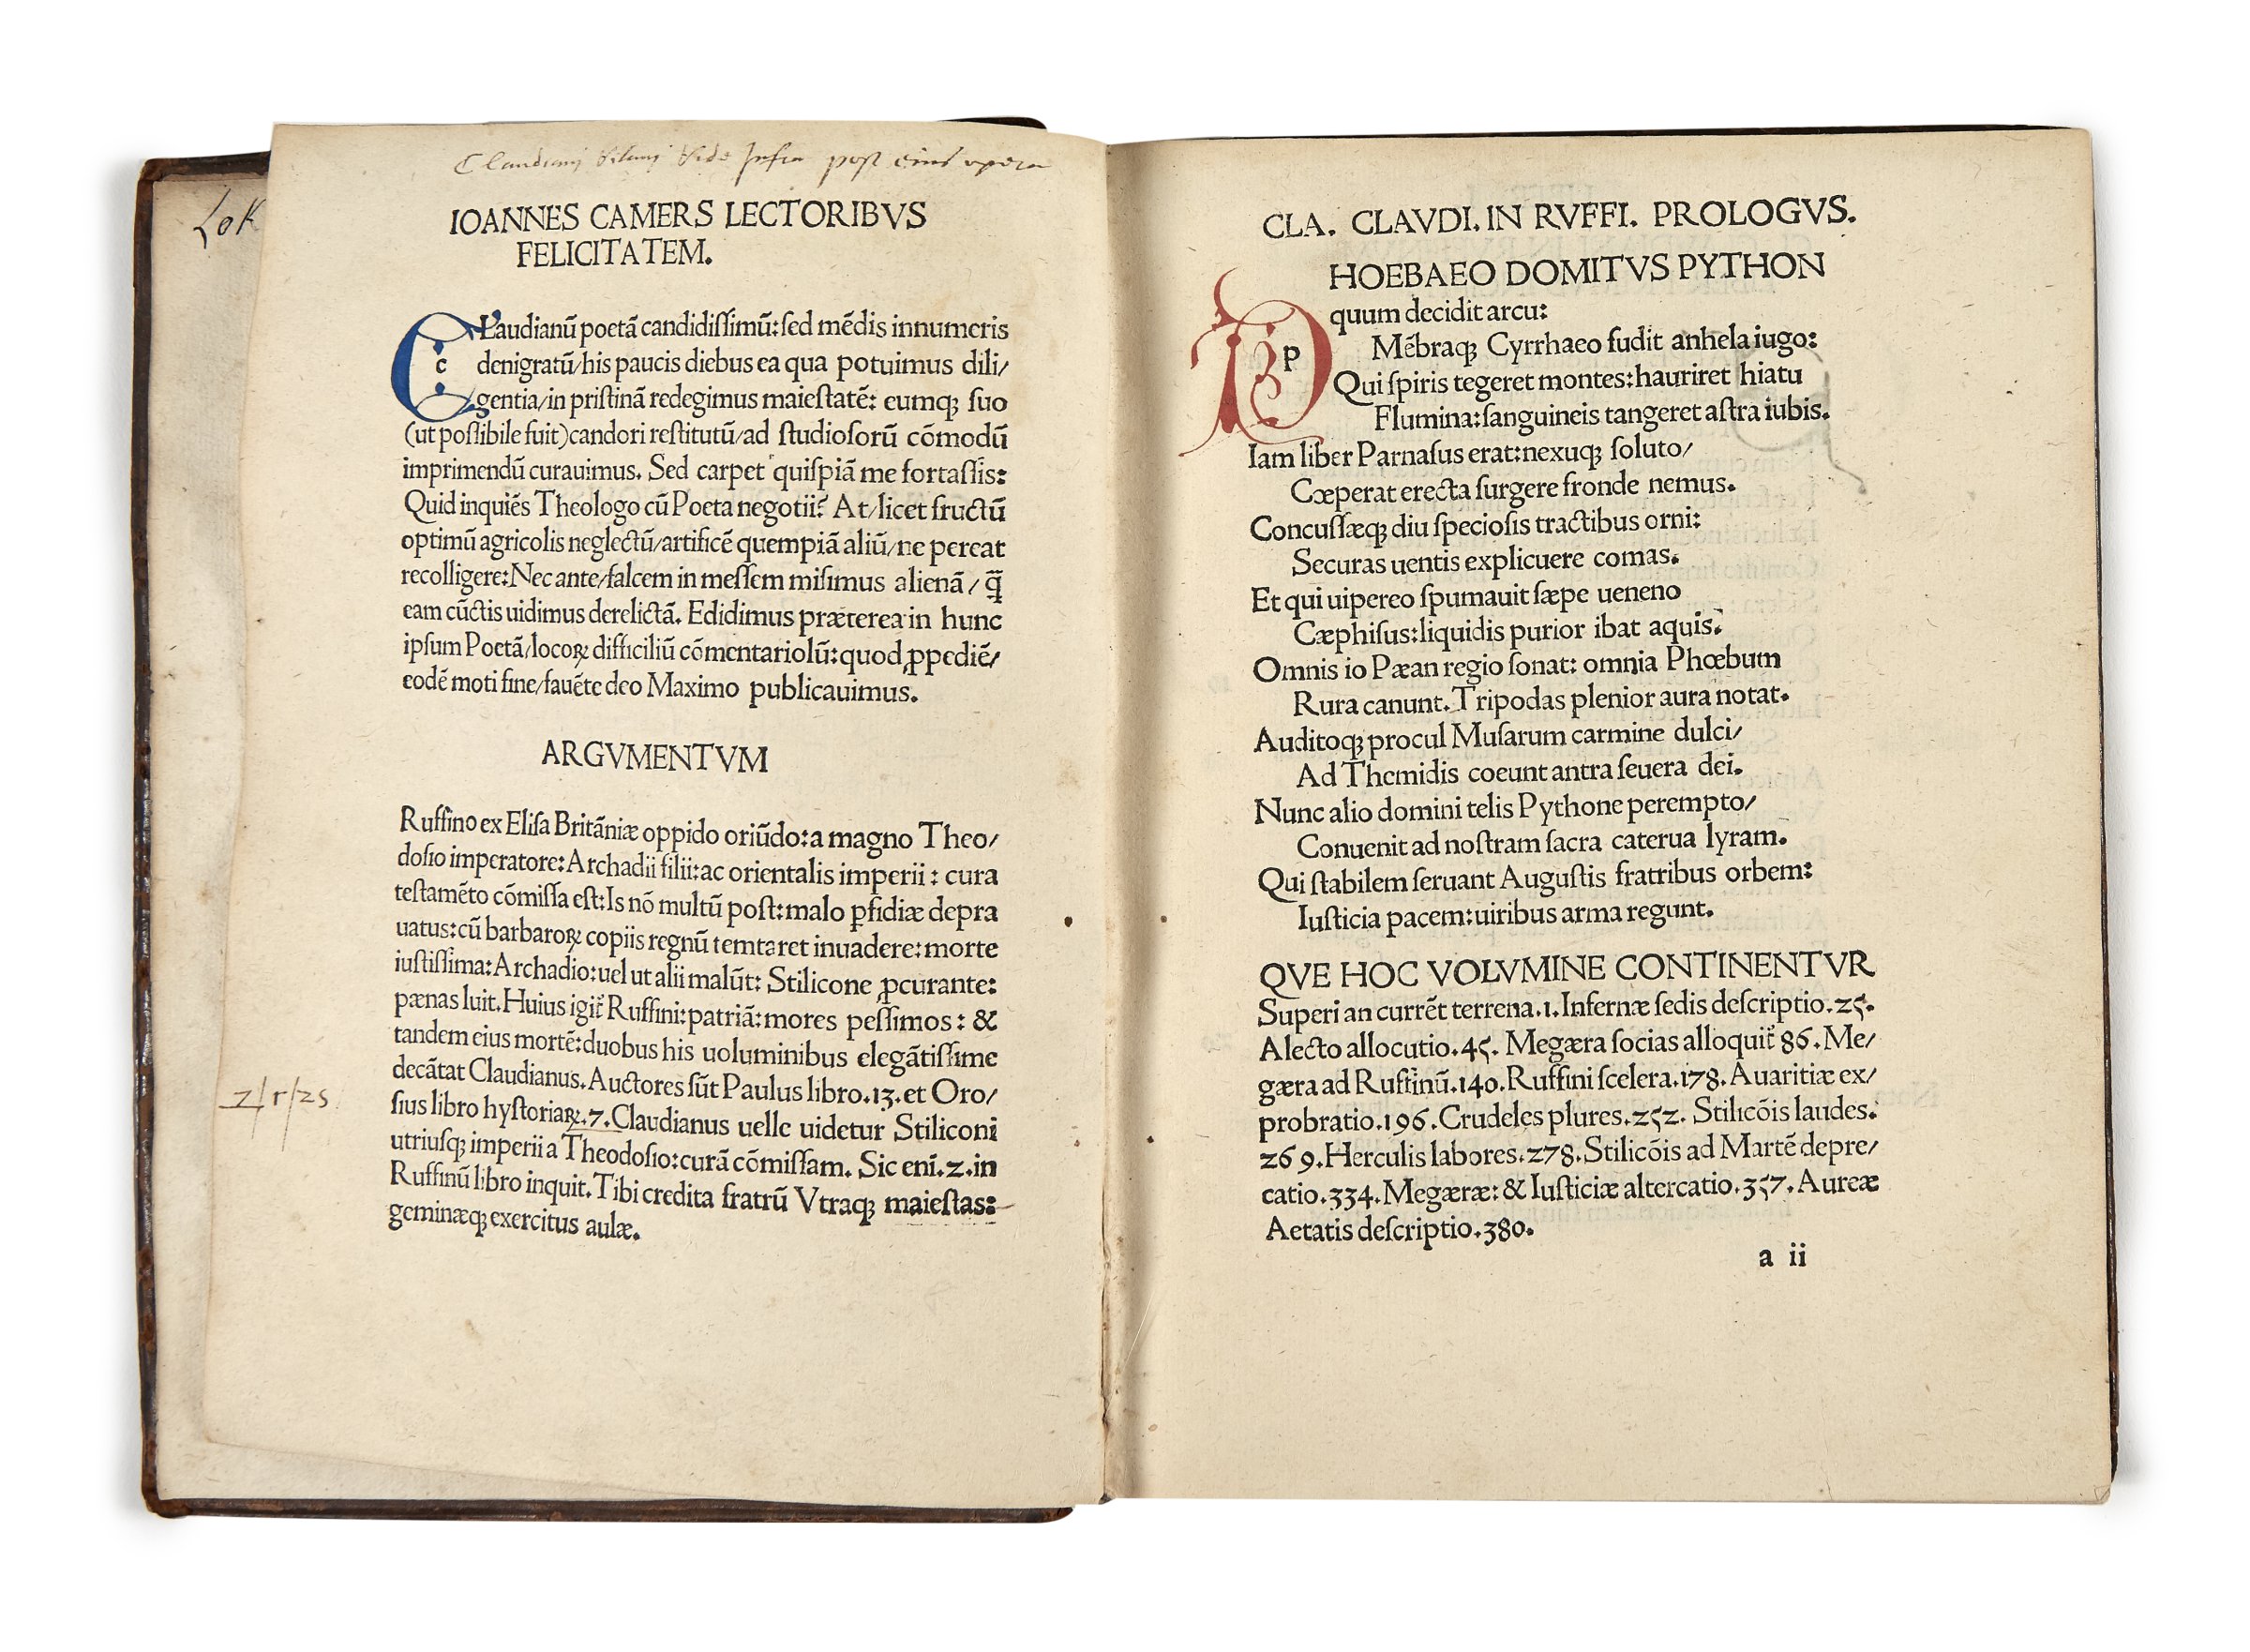 Claudiani vitam vide infra post eius opera
Lok
IOANNES CAMERS LECTORIBVS
FELICITATEM.
cLaudianū poetā candidissimū: sed mēdis innumeris
denigratū/his paucis diebus ea qua potuimus dili/
gentia/in pristinā redegimus maiestatē: eumqꝫ suo
(ut possibile fuit) candori restitutū/ad studiosorū cōmodū
imprimendū curauimus. Sed carpet quispiā me fortassis:
Quid inquiēs Theologo cū Poeta negotii? At/licet fructū
optimū agricolis neglectū/artificē quempiā aliū/ne pereat
recolligere: Nec ante/falcem in messem misimus alienā/ q̄̄
eam cūctis uidimus derelictā. Edidimus præterea in hunc
ipsum Poetā/locoꝝ difficiliū cōmentariolū: quod ꝓpediē/
eodē moti fine/fauēte deo Maximo publicauimus.
ARGVMENTVM
Ruffino ex Elisa Britāniæ oppido oriūdo: a magno Theo/
dosio imperatore: Archadii filii: ac orientalis imperii: cura
testamēto cōmissa est: Is nō multū post: malo ꝑfidiæ depra
uatus: cū barbaroꝝ copiis regnū temtaret inuadere: morte
iustissima: Archadio: uel ut alii malūt: Stilicone ꝓcurante:
pænas luit. Huius igit̄ Ruffini: patriā: mores pessimos: &
tandem eius mortē: duobus his uoluminibus elegātissime
decātat Claudianus. Auctores sūt Paulus libro.13. et Oro/
sius libro hystoriaꝝ.7. Claudianus uelle uidetur Stiliconi
utriusqꝫ imperii a Theodosio: curā cōmissam. Sic eni.2.in
Ruffinū libro inquit. Tibi credita fratrū Vtraqꝫ maiestas:
geminæqꝫ exercitus aulæ.
CLA. CLAVDI. IN RVFFI. PROLOGVS.
pHOEBAEO DOMITVS PYTHON
quum decidit arcu:
Mēbraqꝫ Cyrrhaeo fudit anhela iugo:
Qui spiris tegeret montes: hauriret hiatu
Flumina: sanguineis tangeret astra iubis.
Iam liber Parnasus erat: nexuqꝫ soluto/
Cœperat erecta surgere fronde nemus.
Concussæqꝫ diu speciosis tractibus orni:
Securas uentis explicuere comas.
Et qui uipereo spumauit sæpe ueneno
Cæphisus: liquidis purior ibat aquis.
Omnis io Pæan regio sonat: omnia Phœbum
Rura canunt. Tripodas plenior aura notat.
Auditoqꝫ procul Musarum carmine dulci/
Ad Themidis coeunt antra seuera dei.
Nunc alio domini telis Pythone perempto/
Conuenit ad nostram sacra caterua lyram.
Qui stabilem seruant Augustis fratribus orbem:
Iusticia pacem: uiribus arma regunt.
QVE HOC VOLVMINE CONTINENTVR
Superi an currēt terrena.1. Infernæ sedis descriptio.25.
Alecto allocutio.45. Megæra socias alloquit̄ 86. Me/
gæra ad Ruffinū.140. Ruffini scelera.178. Auaritiæ ex/
probratio.196. Crudeles plures.252. Stilicōis laudes.
269. Herculis labores.278. Stilicōis ad Martē depre/
catio.334. Megæræ: & Iusticiæ altercatio.357. Aureæ
Aetatis descriptio.380.
a ii